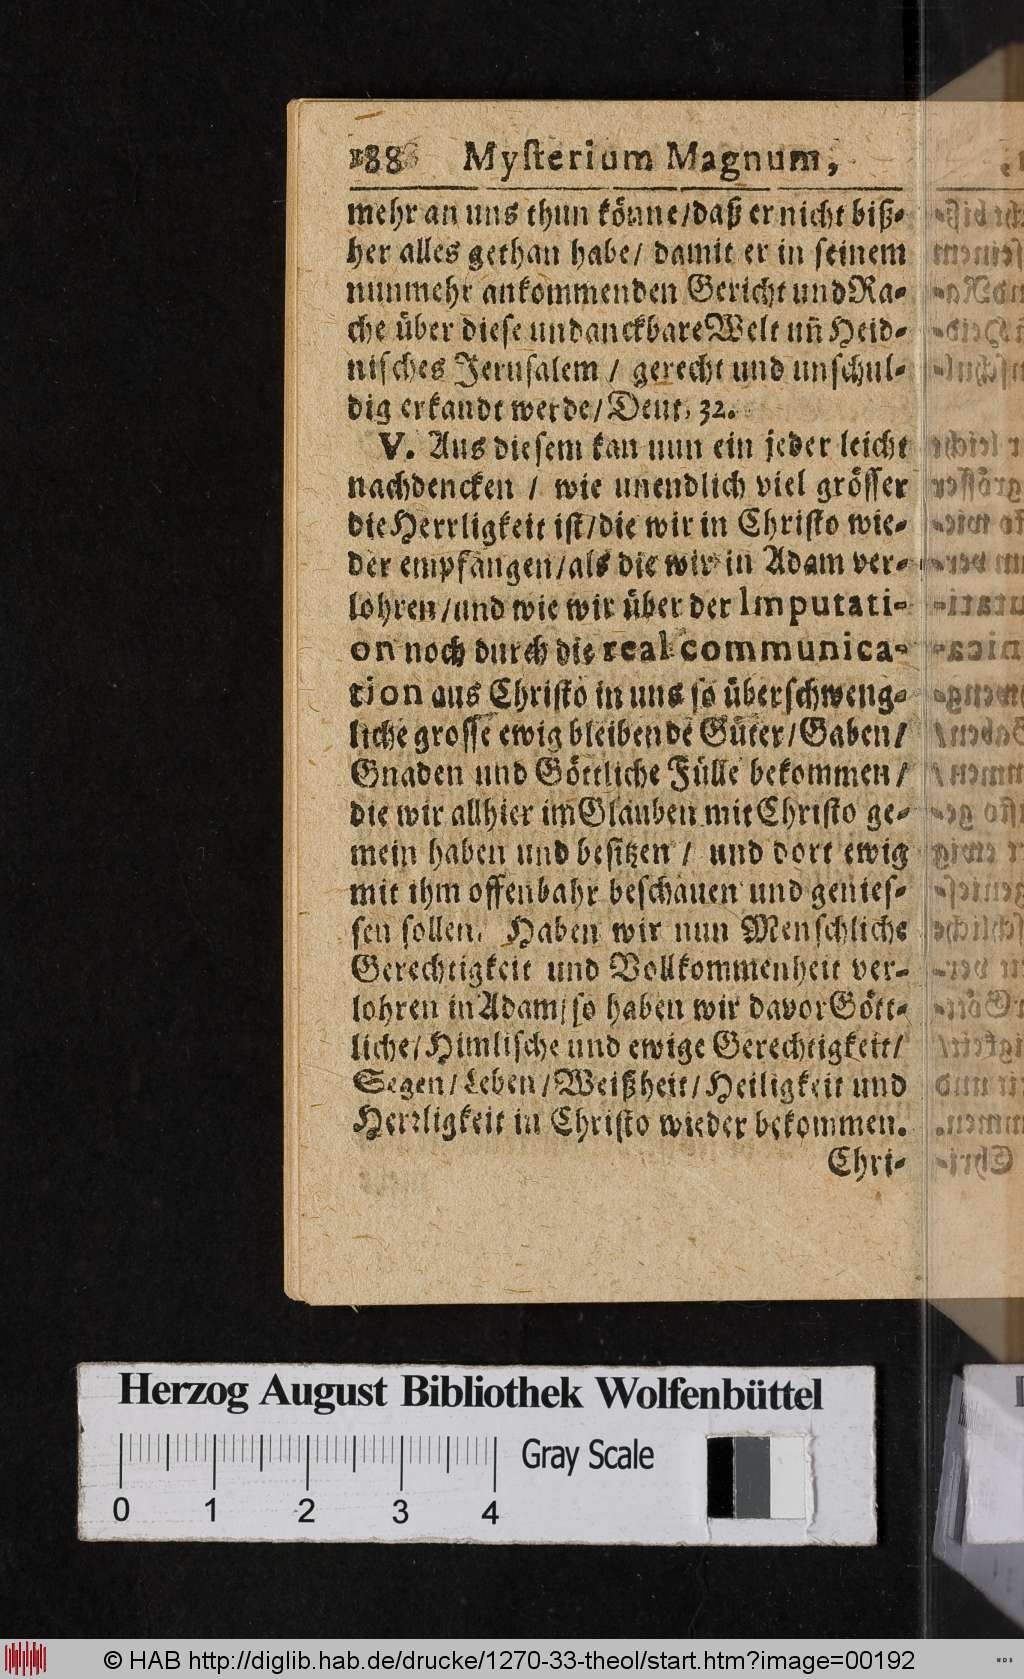 188 Mysterium Magnum,
mehr an uns thun könne/daß er nicht biß-
her alles gethan habe/ damit er in seinem
nunmehr ankommenden Gericht und Ra-
che über diese undanckbare Welt uñ Heid-
nisches Jerusalem / gerecht und unschul-
dig erkandt werde/Deut. 32.
V. Aus diesem kan nun ein jeder leicht
nachdencken / wie unendlich viel grösser
die Herrligkeit ist/die wir in Christo wie-
der empfangen/als die wir in Adam ver-
lohren/und wie wir über der Imputati-
on noch durch die real communica-
tion aus Christo in uns so überschweng-
liche grosse ewig bleibende Güter/Gaben/
Gnaden und Göttliche Fülle bekommen/
die wir allhier im Glauben mit Christo ge-
mein haben und besitzen / und dort ewig
mit ihm offenbahr beschauen und genies-
sen sollen. Haben wir nun Menschliche
Gerechtigkeit und Vollkommenheit ver-
lohren in Adam/so haben wir davor Gött-
liche/Himlische und ewige Gerechtigkeit/
Segen/Leben/Weißheit/Heiligkeit und
Herrligkeit in Christo wieder bekommen.
Chri-
Herzog August Bibliothek Wolfenbüttel
Gray Scale
0 1 2 3 4
© HAB http://diglib.hab.de/drucke/1270-33-theol/start.htm?image=00192